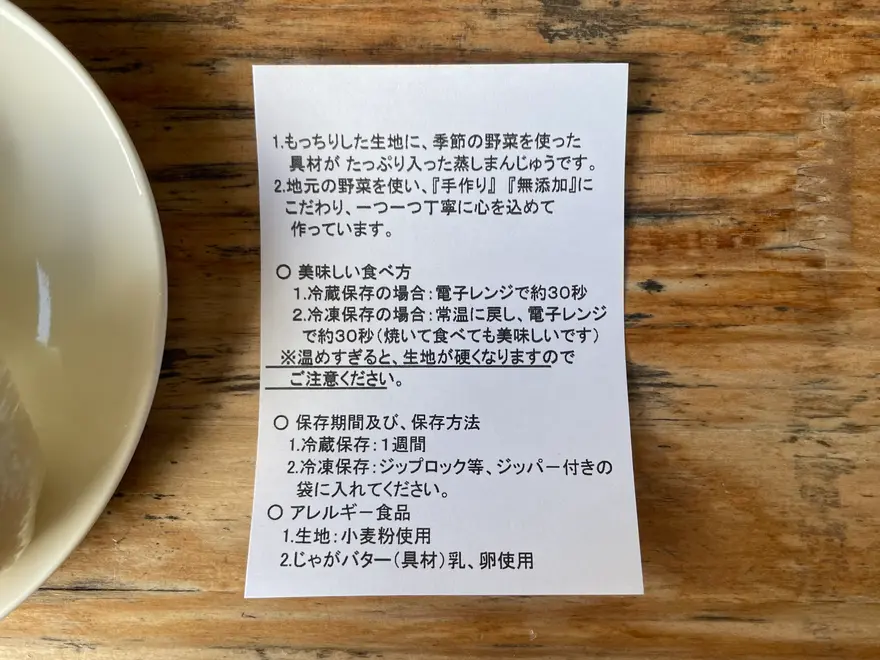 1.もっちりした生地に、季節の野菜を使った
具材が たっぷり入った蒸しまんじゅうです。
2.地元の野菜を使い、『手作り』『無添加』に
こだわり、一つ一つ丁寧に心を込めて
作っています。
○ 美味しい食べ方
1.冷蔵保存の場合：電子レンジで約30秒
2.冷凍保存の場合：常温に戻し、電子レンジ
で約30秒（焼いて食べても美味しいです）
※温めすぎると、生地が硬くなりますので
ご注意ください。
○ 保存期間及び、保存方法
1.冷蔵保存：１週間
2.冷凍保存：ジップロック等、ジッパー付きの
袋に入れてください。
○ アレルギー食品
1.生地：小麦粉使用
2.じゃがバター（具材）乳、卵使用